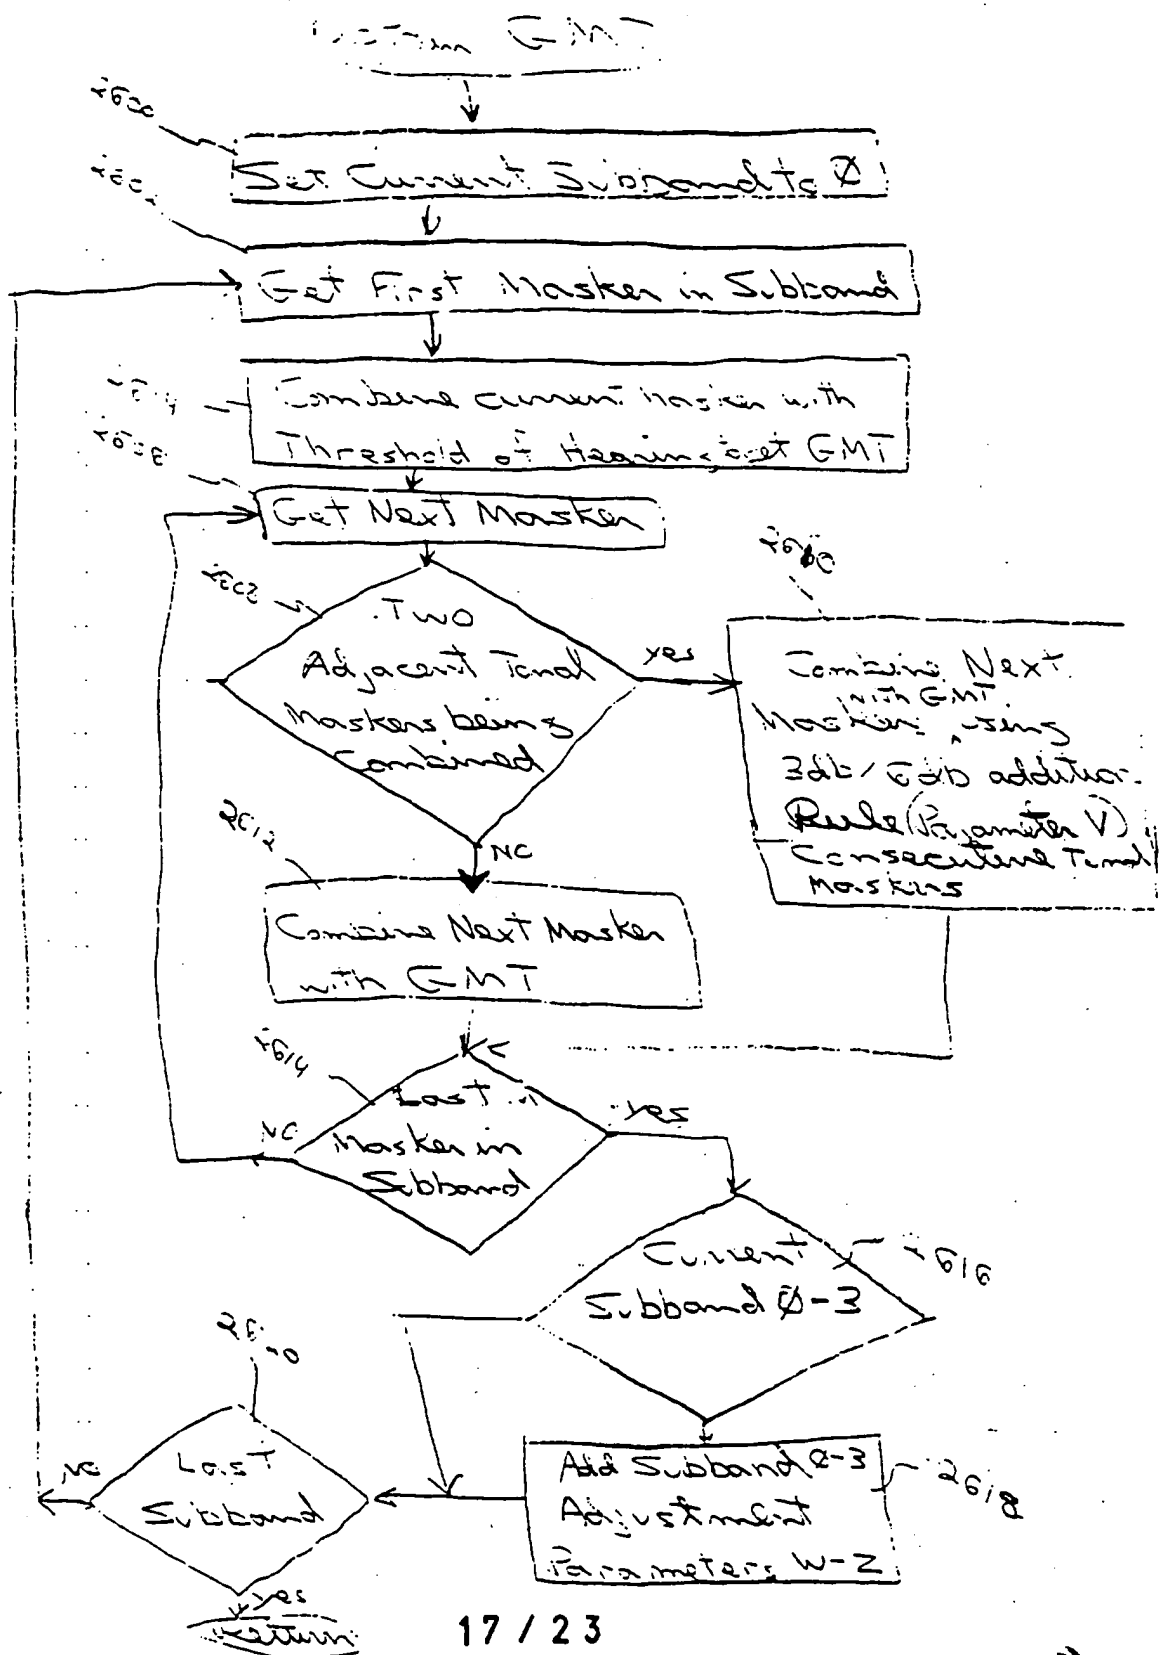 GMT
Set Current Subband to Ø
Get First Masker in Subband
Combine current masker with
Threshold of Hearing, get GMT
Get Next Masker
TWO
Adjacent Tonal
Maskers being
Combined
yes
Combine Next
with GMT
Masker using
3db/6db addition
Rule (Parameter V)
Consecutive Tonal
Maskers
2612
NO
Combine Next Masker
with GMT
2614
Last
Masker in
Subband
NO
yes
Current
Subband Ø-3
2616
Last
Subband
NO
Add Subband Ø-3
Adjustment
Parameters W-Z
2618
yes
Return
17/23